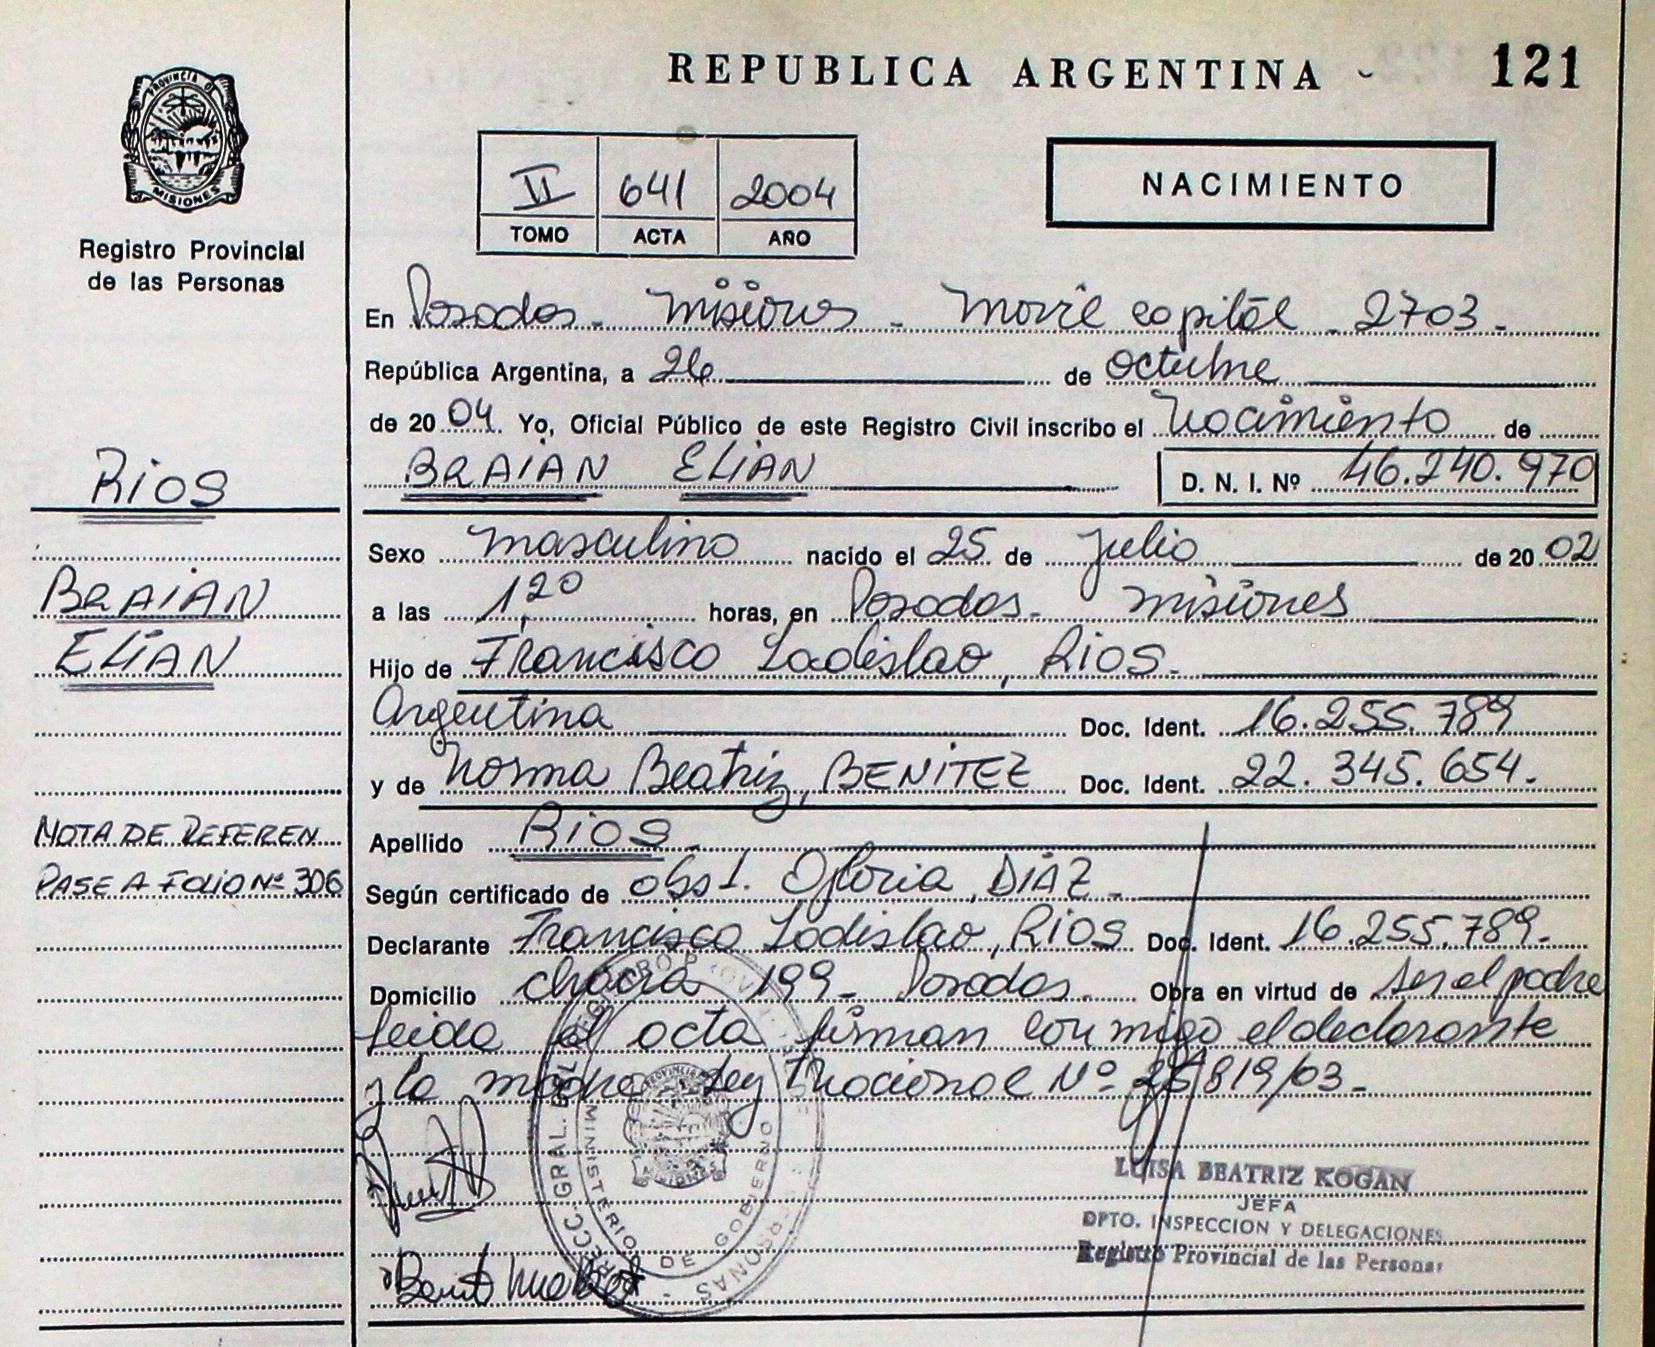 REPUBLICA ARGENTINA
121
PROVINCIA DE
MISIONES
Registro Provincial
de las Personas
II 641 2004
TOMO ACTA AÑO
NACIMIENTO
En Posadas - Misiones - Movil capital - 2703 -
República Argentina, a 26 de octubre
de 2004 Yo, Oficial Público de este Registro Civil inscribo el Nacimiento de
BRAIAN ELIAN D. N. I. Nº 46.240.970
RIOS
BRAIAN
ELIAN
Sexo masculino nacido el 25 de julio de 2002
a las 1,20 horas, en Posadas - Misiones
Hijo de Francisco Ladislao, RIOS -
Argentina Doc. Ident. 16.255.789
y de Norma Beatriz, BENITEZ Doc. Ident. 22.345.654.
NOTA DE REFEREN
PASE A FOLIO Nº 306
Apellido RIOS -
Según certificado de obst. Gloria, DIAZ -
Declarante Francisco Ladislao, RIOS Doc. Ident. 16.255.789 -
Domicilio chacra 199 - Posadas - Obra en virtud de ser el padre
leida el acta firman conmigo el declarante
y la madre Ley Nacional Nº 25819/03 -
MINISTERIO DE GOBIERNO
LUISA BEATRIZ KOGAN
JEFA
DPTO. INSPECCION Y DELEGACIONES
Registro Provincial de las Personas